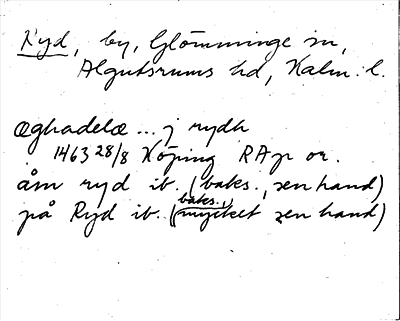 Ryd, by, Glömminge sn,
Algutsrums hd, Kalm. l.
Æghadelæ ... j rydh
1463 28/8 Köping RAp or.
åm ryd ib. (baks., sen hand)
på Ryd ib. (baks., mycket sen hand)